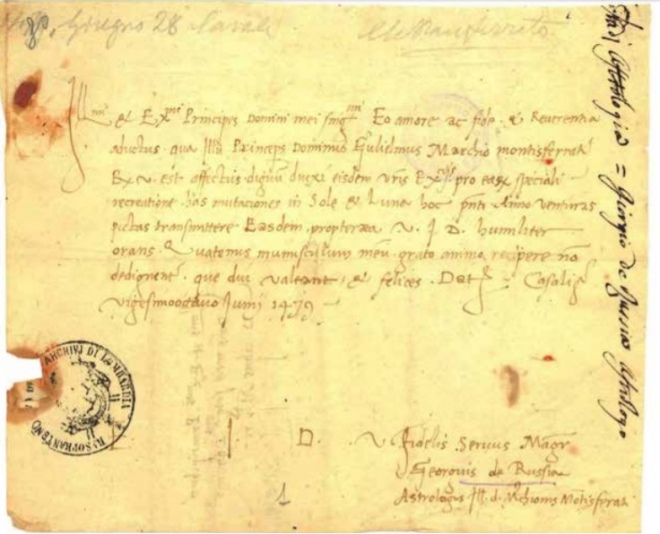 Giugno 28 Casale
Ill^mi & Ex^mi Principes Domini mei sing^mi Eo amore ac fide & Reverentia
aductus qua Ill^s Princeps Dominus Gulielmus Marchio montisferrati
Ex V. est affectus dignũ duxi eisdem vris Ex^tijs pro eaꝝ speciali
recreatione has mutaciones in Sole & Luna hoc pñti Anno venturas
pictas transmittere Easdem propterea V. I D. humiliter
orans Quatenus munusculum meũ grato animo recipere nõ
dedignent^r que diu valeant & felices. Dat^e Casalis
vigesimooctavo Junij 1479
I D V fidelis Servus Mag^r
Georgius de Russia
Astrologus Ill. d. Mchionis Mõtisferrati
Astrologia = Giorgio de Russia Astrologo
ARCHIVI DI LOMBARDIA